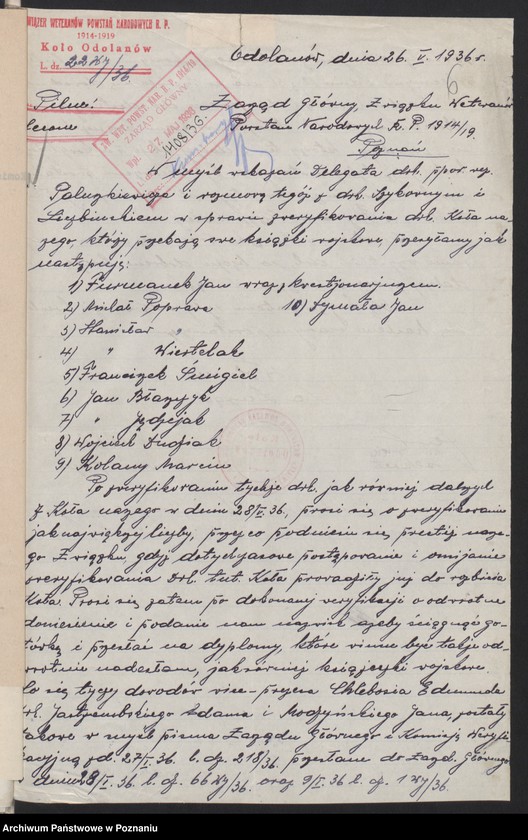 ZWIĄZEK WETERANÓW POWSTAŃ NARODOWYCH R. P.
1914-1919
Koło Odolanów
L. dz. 22/XI/36.
Odolanów, dnia 26. V. 1936 r.
6
Pilne!
Zarząd Główny Związku Weteranów
Powstań Narodowych R. P. 1914/9
Poznań
ZARZĄD GŁÓWNY
1408/36
W myśl wskazań Delegata drh. ppor. rez.
Paluszkiewicza i rozmową tegoż z drh. Wykornym i
Liczbińskiem w sprawie zweryfikowania drh. Koła na-
szego, którzy czekają swe książki wojskowe, przesyłamy jak
następują:
1) Furmanek Jan wraz z kwestjonarjuszem.
2) Michał Poprawa 10) Szymała Jan
3) Stanisław "
4) " Wiertelak
5) Franciszek Śmigiel
6) Jan Błaszczyk
7) " Jędrzejak
8) Wojciech Dudziak
9) Kolany Marcin
Po zweryfikowaniu tychże drh. jak również dalszych
z Koła naszego w dniu 28/V. 36, prosi się o zweryfikowanie
jak największej liczby, przyczem podniesie się prestiż nasze-
go Związku gdyż dotychczasowe postępowanie i omijanie
zweryfikowania drh. tut. Koła prowadziły już do rozbicia
Koła. Prosi się zatem po dokonanej weryfikacji o odwrotne
doniesienie i podanie nam nazwisk żeby ściągnąć go-
tówkę i przesłać na dyplomy, które winne być także od-
wrotnie nadesłane, jak również książeczki wojskowe.
Co się tyczy dowodów vice-prezesa Chlebosia Edmunda
drh. Jastrzembskiego Adama i Modzyńskiego Jana, zostały
takowe w myśl pisma Zarządu Głównego i Komisji Weryfi-
kacyjną z d. 27/I. 36. l. dz. 218/36 przesłane do Zarząd. Głównego
w dniu 28/I. 36. l. dz. 66/XI/36 oraz 9/I. 36 l. dz. 1/XI/36.
Archiwum Państwowe w Poznaniu